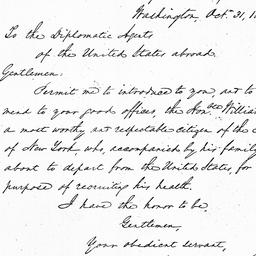 Washington Oct. 31, 1
To the Diplomatic Agents
of the United States abroad.
Gentlemen:
Permit me to introduce to you, and to
mend to your good offices, the Hon. Willia
a most worthy and respectable citizen of the
of New York, who, accompanied by his family
about to depart from the United States, for
purpose of recruiting his health.
I have the honor to be,
Gentlemen,
Your obedient servant,